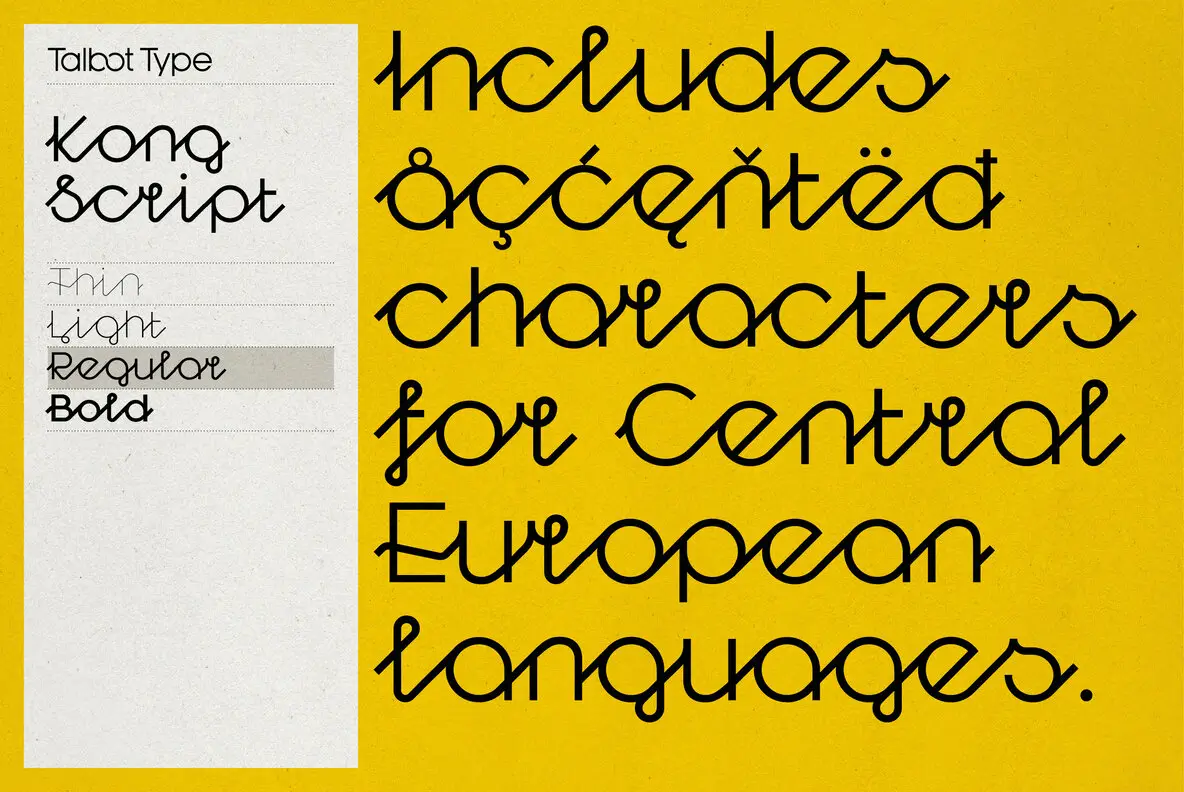 Talbot Type
Kong
Script
Thin
Light
Regular
Bold
Includes
åçćęňtëđ
characters
for Central
European
languages.